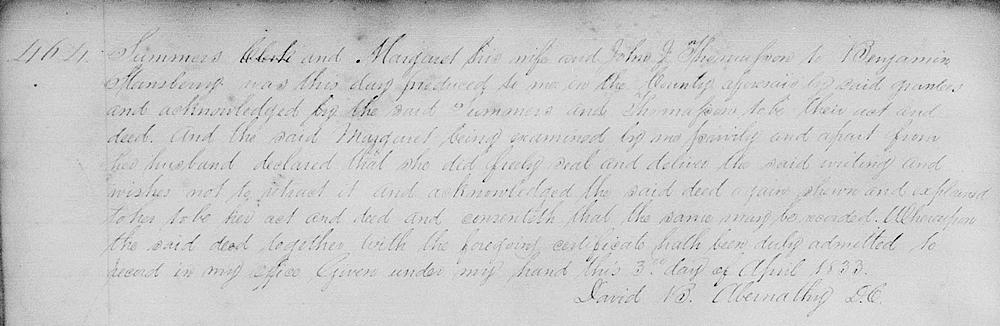 464. Summers Clerk and Margaret his wife and John J. Thomasson to Benjamin
Stansbury was this day produced to me in the County aforesaid by said grantors
and acknowledged by the said Summers and Thomasson to be their act and
deed. And the said Margaret being examined by me privily and apart from
her husband declared that she did freely seal and deliver the said writing and
wishes not to retract it and acknowledged the said deed again shewn and explained
to her to be her act and deed and consenteth that the same may be recorded. Whereupon
the said deed together with the foregoing certificate hath been duly admitted to
record in my office Given under my hand this 3rd day of April 1833.
David B. Abernathy D.C.